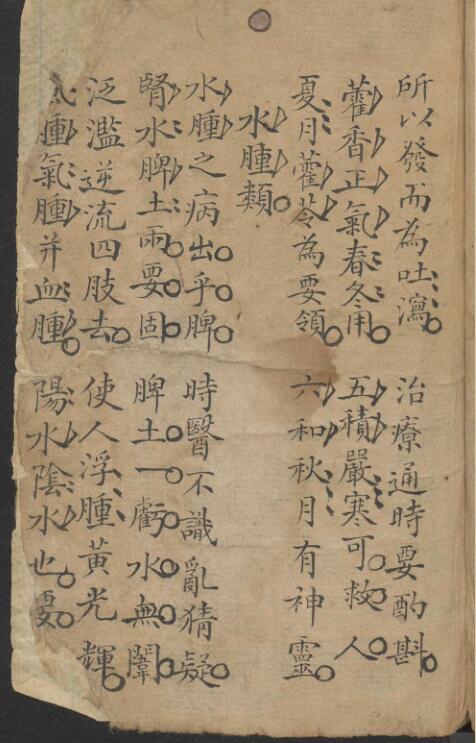 所以發而為吐瀉 治療通時要酌斟
藿香正氣春冬用 五積嚴寒可救人
夏月藿苓為要領 六和秋月有神靈
水腫類
水腫之病出乎脾 時醫不識亂猜疑
腎水脾土兩要固 脾土一虧水無闈
泛濫逆流四肢去 使人浮腫黃光輝
腫氣腫并血腫 陽水陰水也要